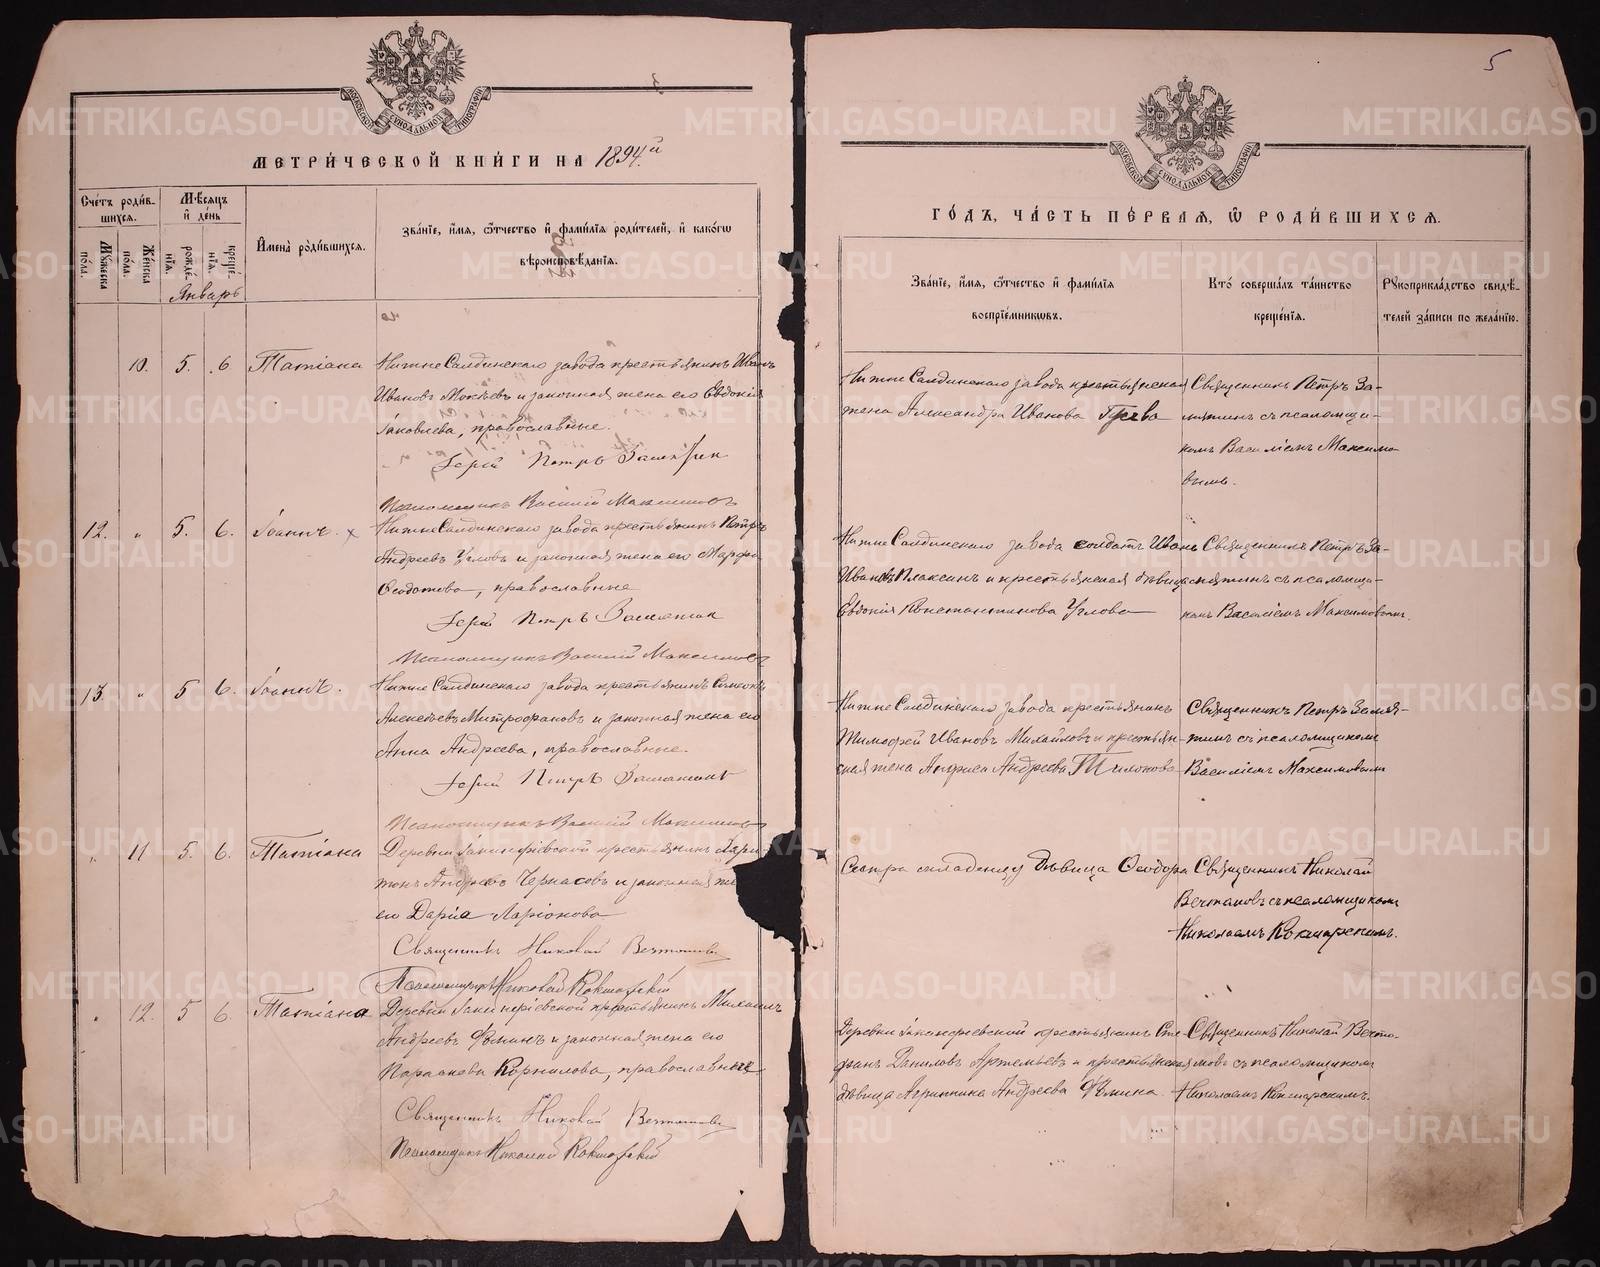 МЕТРИЧЕСКОЙ КНИГИ НА 1894.й
Счетъ родив-
шихся.
Мѣсяцъ
и день
Имена родившихся.
Званіе, имя, отчество и фамилія родителей, и какогѡ
вѣроисповѣданія.
Мужеска пола.
Женска пола.
рожде-
нія.
креще-
нія.
Январь
10. 5. 6 Татіана Нижне Салдинскаго завода крестьянинъ Иванъ
Ивановъ Мокѣевъ и законная жена его Евдокія
Іаковлева, православные.
Іерей Петръ Замятин
Псаломщикъ Василій Максимовъ
12. " 5. 6. Іоаннъ. х Нижне Салдинскаго завода крестьянинъ Петръ
Андреевъ Угловъ и законная жена его Марфа
Ѳеодотова, православные
Іерей Петръ Замятин
Псаломщикъ Василій Максимовъ
13. " 5 6. Іоаннъ. Нижне Салдинскаго завода крестьянинъ Симеонъ
Алексѣевъ Митрофановъ и законная жена его
Анна Андреева, православные.
Іерей Петръ Замятин
Псаломщикъ Василій Максимовъ
" 11 5. 6. Татіана Деревни крестьянинъ Лари-
онъ Андреевъ Черкасовъ и законная же
его Дарія Ларіонова
Священникъ Николай
Псаломщикъ Николай Кокшарскій
" 12. 5 6. Татіана Деревни крестьянинъ Михаилъ
Андреевъ Ѳоминъ и законная жена его
Параскева Корнилова, православные
Священникъ Николай
Псаломщикъ Николай Кокшарскій
5
ГОДЪ, ЧАСТЬ ПЕРВАЯ, Ѡ РОДИВШИХСЯ.
Званіе, имя, отчество и фамилія
воспріемниковъ.
Кто совершалъ таинство
крещенія.
Рукоприкладство свидѣ-
телей записи по желанію.
Нижне Салдинскаго завода крестьянская Священникъ Петръ За-
жена Александра Иванова мятинъ съ псаломщи-
комъ Василіемъ Максимо-
вымъ.
Нижне Салдинскаго завода солдатъ Иванъ Священникъ Петръ За-
Ивановъ Плаксинъ и крестьянская дѣвица мятинъ съ псаломщи-
Евдокія Константинова Углова комъ Василіемъ Максимовымъ.
Нижне Салдинскаго завода крестьянинъ Священникъ Петръ Замя-
Тимофей Ивановъ Михайловъ и крестьян- тинъ съ псаломщикомъ
ская жена Анфиса Андреева Василіемъ Максимовымъ
Сестра младенцу дѣвица Ѳеодора Священникъ Николай
съ псаломщикомъ
Николаемъ Кокшарскимъ.
Деревни крестьянинъ Сте- Священникъ Николай
фанъ Даниловъ Артемьевъ и крестьянская съ псаломщикомъ
дѣвица Агриппина Андреева Ѳомина. Николаемъ Кокшарскимъ.
METRIKI.GASO-URAL.RU